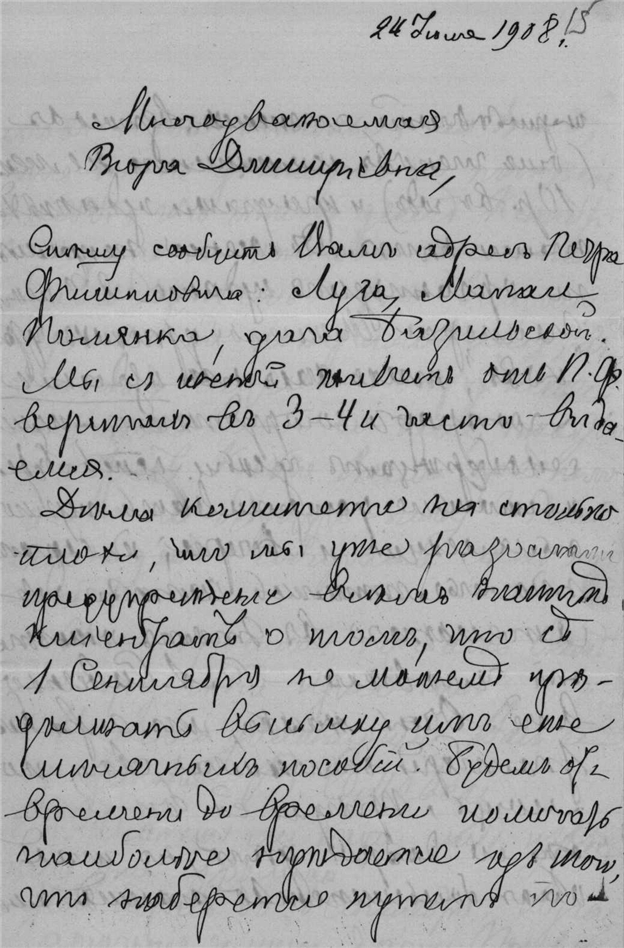 24 Июня 1908. 15
Многоуважаемая
Вѣра Дмитріевна,
Спѣшу сообщить Вамъ адресъ Петра
Филипповича: Луга, Малая
Полянка, дача
Мы съ женой живемъ отъ П. Ф.
верстахъ въ 3–4 и часто вида-
емся.
Дѣла комитета на столько
плохи, что мы уже разослали
предупрежденіе всѣмъ нашимъ
о томъ, что съ
1 Сентября не можемъ про-
должать высылку имъ еже
мѣсячныхъ пособій. Будемъ отъ
времени до времени помогать
наиболѣе нуждается изъ того,
что наберется путемъ по-